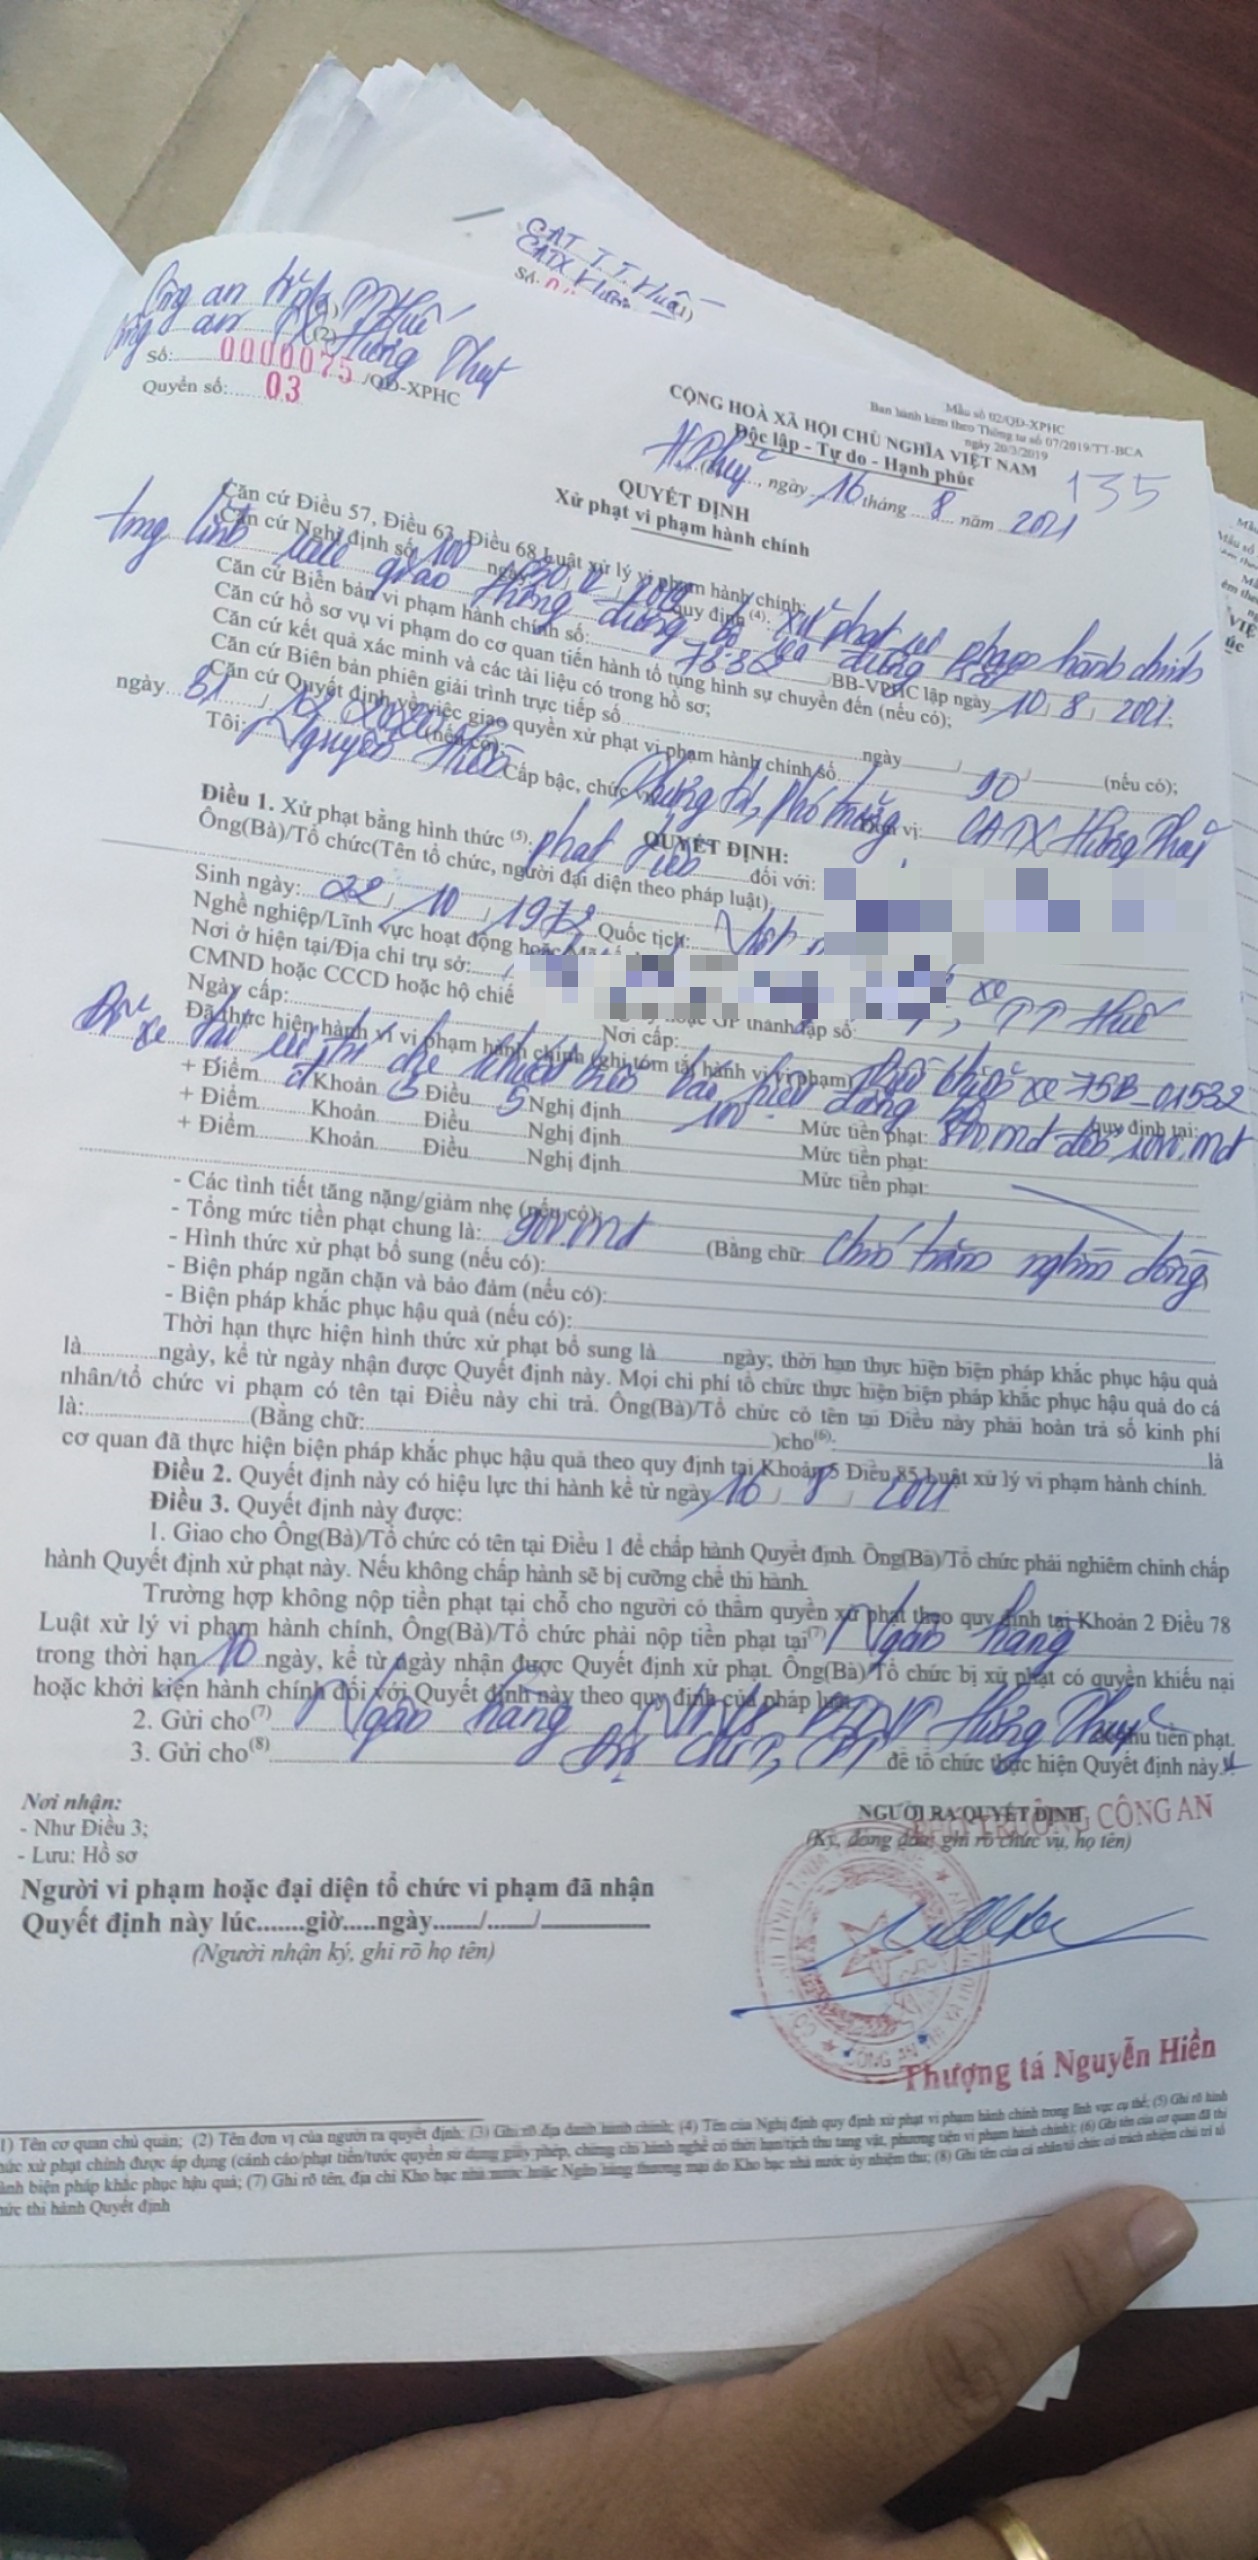 CAT T.T.Huế
CATX Hương
Số:
Công an tỉnh TT Huế
Công an TX Hương Thuỷ
Số: 0000075 /QĐ-XPHC
Quyển số: 03
Mẫu số 02/QĐ-XPHC
Ban hành kèm theo Thông tư số 07/2019/TT-BCA
ngày 20/3/2019
CỘNG HOÀ XÃ HỘI CHỦ NGHĨA VIỆT NAM
Độc lập - Tự do - Hạnh phúc
135
H.Thuỷ, ngày 16 tháng 8 năm 2021
QUYẾT ĐỊNH
Xử phạt vi phạm hành chính
Căn cứ Điều 57, Điều 63, Điều 68 Luật xử lý vi phạm hành chính;
Căn cứ Nghị định số 100 ngày 30/12/2019 quy định (4): xử phạt vi phạm hành chính
trong lĩnh vực giao thông đường bộ và đường sắt
Căn cứ Biên bản vi phạm hành chính số: BB-VPHC lập ngày 10/8/2021;
Căn cứ hồ sơ vụ vi phạm do cơ quan tiến hành tố tụng hình sự chuyển đến (nếu có);
Căn cứ kết quả xác minh và các tài liệu có trong hồ sơ;
Căn cứ Biên bản phiên giải trình trực tiếp số ngày / / (nếu có);
Căn cứ Quyết định về việc giao quyền xử phạt vi phạm hành chính số 90
ngày 31/12/2020 (nếu có);
Tôi: Nguyễn Hiền Cấp bậc, chức vụ: Thượng tá, Phó trưởng Đơn vị: CATX Hương Thuỷ
QUYẾT ĐỊNH:
Điều 1. Xử phạt bằng hình thức (5): phạt tiền đối với:
Ông(Bà)/Tổ chức(Tên tổ chức, người đại diện theo pháp luật)
Sinh ngày: 22/10/1972 Quốc tịch: Việt
Nghề nghiệp/Lĩnh vực hoạt động hoặc Mã số
Nơi ở hiện tại/Địa chỉ trụ sở: TT Huế
CMND hoặc CCCD hoặc hộ chiế hoặc GP thành lập số:
Ngày cấp: Nơi cấp:
Đã thực hiện hành vi vi phạm hành chính (ghi tóm tắt hành vi vi phạm) xe 75B-01532
quy định tại:
+ Điểm Khoản 3 Điều 5 Nghị định 100 Mức tiền phạt: 800.000đ đến 1000.000đ
+ Điểm Khoản Điều Nghị định Mức tiền phạt:
+ Điểm Khoản Điều Nghị định Mức tiền phạt:
- Các tình tiết tăng nặng/giảm nhẹ (nếu có):
- Tổng mức tiền phạt chung là: 900.000đ (Bằng chữ: Chín trăm nghìn đồng
- Hình thức xử phạt bổ sung (nếu có):
- Biện pháp ngăn chặn và bảo đảm (nếu có):
- Biện pháp khắc phục hậu quả (nếu có):
Thời hạn thực hiện hình thức xử phạt bổ sung là ngày; thời hạn thực hiện biện pháp khắc phục hậu quả
là ngày, kể từ ngày nhận được Quyết định này. Mọi chi phí tổ chức thực hiện biện pháp khắc phục hậu quả do cá
nhân/tổ chức vi phạm có tên tại Điều này chi trả. Ông(Bà)/Tổ chức có tên tại Điều này phải hoàn trả số kinh phí
là: (Bằng chữ: )cho(6): là
cơ quan đã thực hiện biện pháp khắc phục hậu quả theo quy định tại Khoản 5 Điều 85 Luật xử lý vi phạm hành chính.
Điều 2. Quyết định này có hiệu lực thi hành kể từ ngày 16/8/2021
Điều 3. Quyết định này được:
1. Giao cho Ông(Bà)/Tổ chức có tên tại Điều 1 để chấp hành Quyết định. Ông(Bà)/Tổ chức phải nghiêm chỉnh chấp
hành Quyết định xử phạt này. Nếu không chấp hành sẽ bị cưỡng chế thi hành.
Trường hợp không nộp tiền phạt tại chỗ cho người có thẩm quyền xử phạt theo quy định tại Khoản 2 Điều 78
Luật xử lý vi phạm hành chính, Ông(Bà)/Tổ chức phải nộp tiền phạt tại(7) Ngân hàng
trong thời hạn 10 ngày, kể từ ngày nhận được Quyết định xử phạt. Ông(Bà)/Tổ chức bị xử phạt có quyền khiếu nại
hoặc khởi kiện hành chính đối với Quyết định này theo quy định của pháp luật.
2. Gửi cho(7) Ngân hàng Hương Thuỷ để thu tiền phạt.
3. Gửi cho(8) để tổ chức thực hiện Quyết định này.
Nơi nhận:
- Như Điều 3;
- Lưu: Hồ sơ
NGƯỜI RA QUYẾT ĐỊNH
PHÓ TRƯỞNG CÔNG AN
(Ký, đóng dấu, ghi rõ chức vụ, họ tên)
Người vi phạm hoặc đại diện tổ chức vi phạm đã nhận
Quyết định này lúc.......giờ.....ngày......./......./
(Người nhận ký, ghi rõ họ tên)
Thượng tá Nguyễn Hiền
1) Tên cơ quan chủ quản; (2) Tên đơn vị của người ra quyết định; (3) Ghi rõ địa danh hành chính; (4) Tên của Nghị định quy định xử phạt vi phạm hành chính trong lĩnh vực cụ thể; (5) Ghi rõ hình
hức xử phạt chính được áp dụng (cảnh cáo/phạt tiền/tước quyền sử dụng giấy phép, chứng chỉ hành nghề có thời hạn/tịch thu tang vật, phương tiện vi phạm hành chính); (6) Ghi tên của cơ quan đã thi
ành biện pháp khắc phục hậu quả; (7) Ghi rõ tên, địa chỉ Kho bạc nhà nước hoặc Ngân hàng thương mại do Kho bạc nhà nước ủy nhiệm thu; (8) Ghi tên của cá nhân/tổ chức có trách nhiệm chủ trì tổ
hức thi hành Quyết định